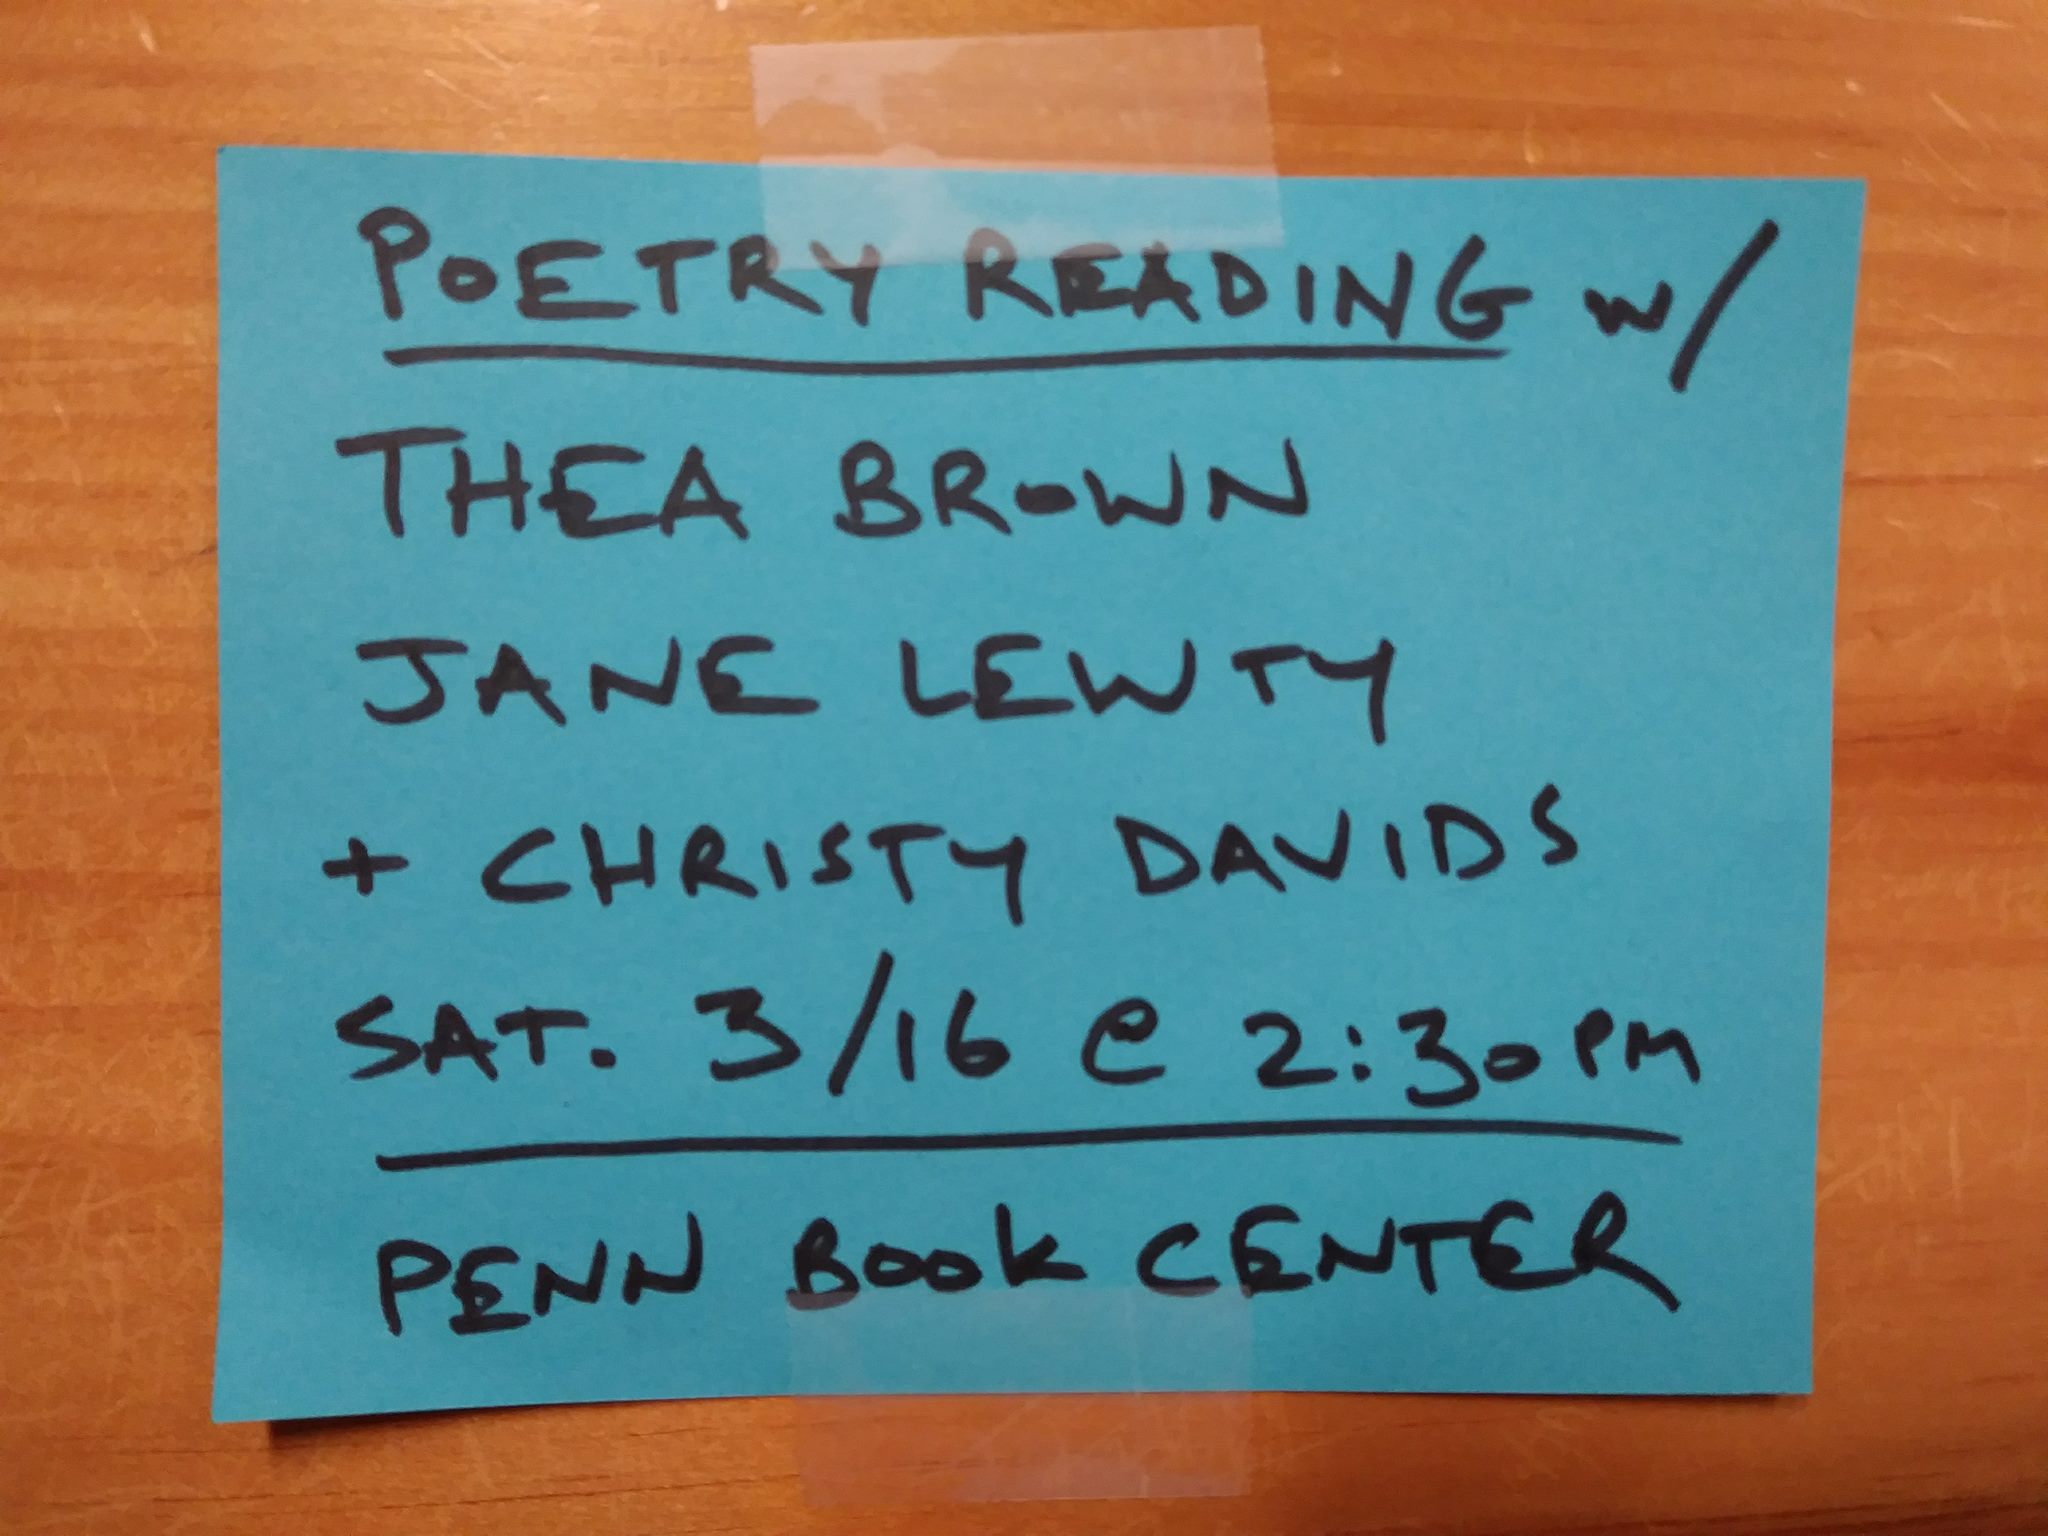 POETRY READING w/
THEA BROWN
JANE LEWTY
+ CHRISTY DAVIDS
SAT. 3/16 @ 2:30PM
PENN BOOK CENTER